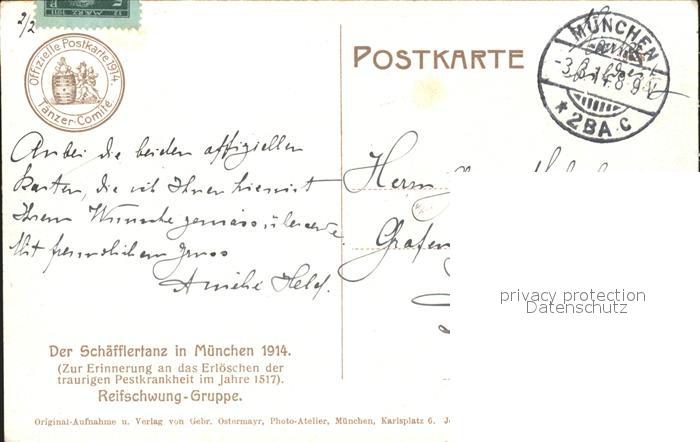 2/2
12. MÄRZ 1911
Offizielle Postkarte 1914.
Tänzer-Comité
POSTKARTE
MÜNCHEN
-3. 14. 8-9 V
* 2 B.A. C
Anbei die beiden offiziellen
Karten, die ich Ihnen hiermit
Ihrem Wunsche gemäss, übersende.
Mit freundlichem Gruss
Amélie Held.
Herrn
Grafen
privacy protection
Datenschutz
Der Schäfflertanz in München 1914.
(Zur Erinnerung an das Erlöschen der
traurigen Pestkrankheit im Jahre 1517).
Reifschwung-Gruppe.
Original-Aufnahme u. Verlag von Gebr. Ostermayr, Photo-Atelier, München, Karlsplatz 6.